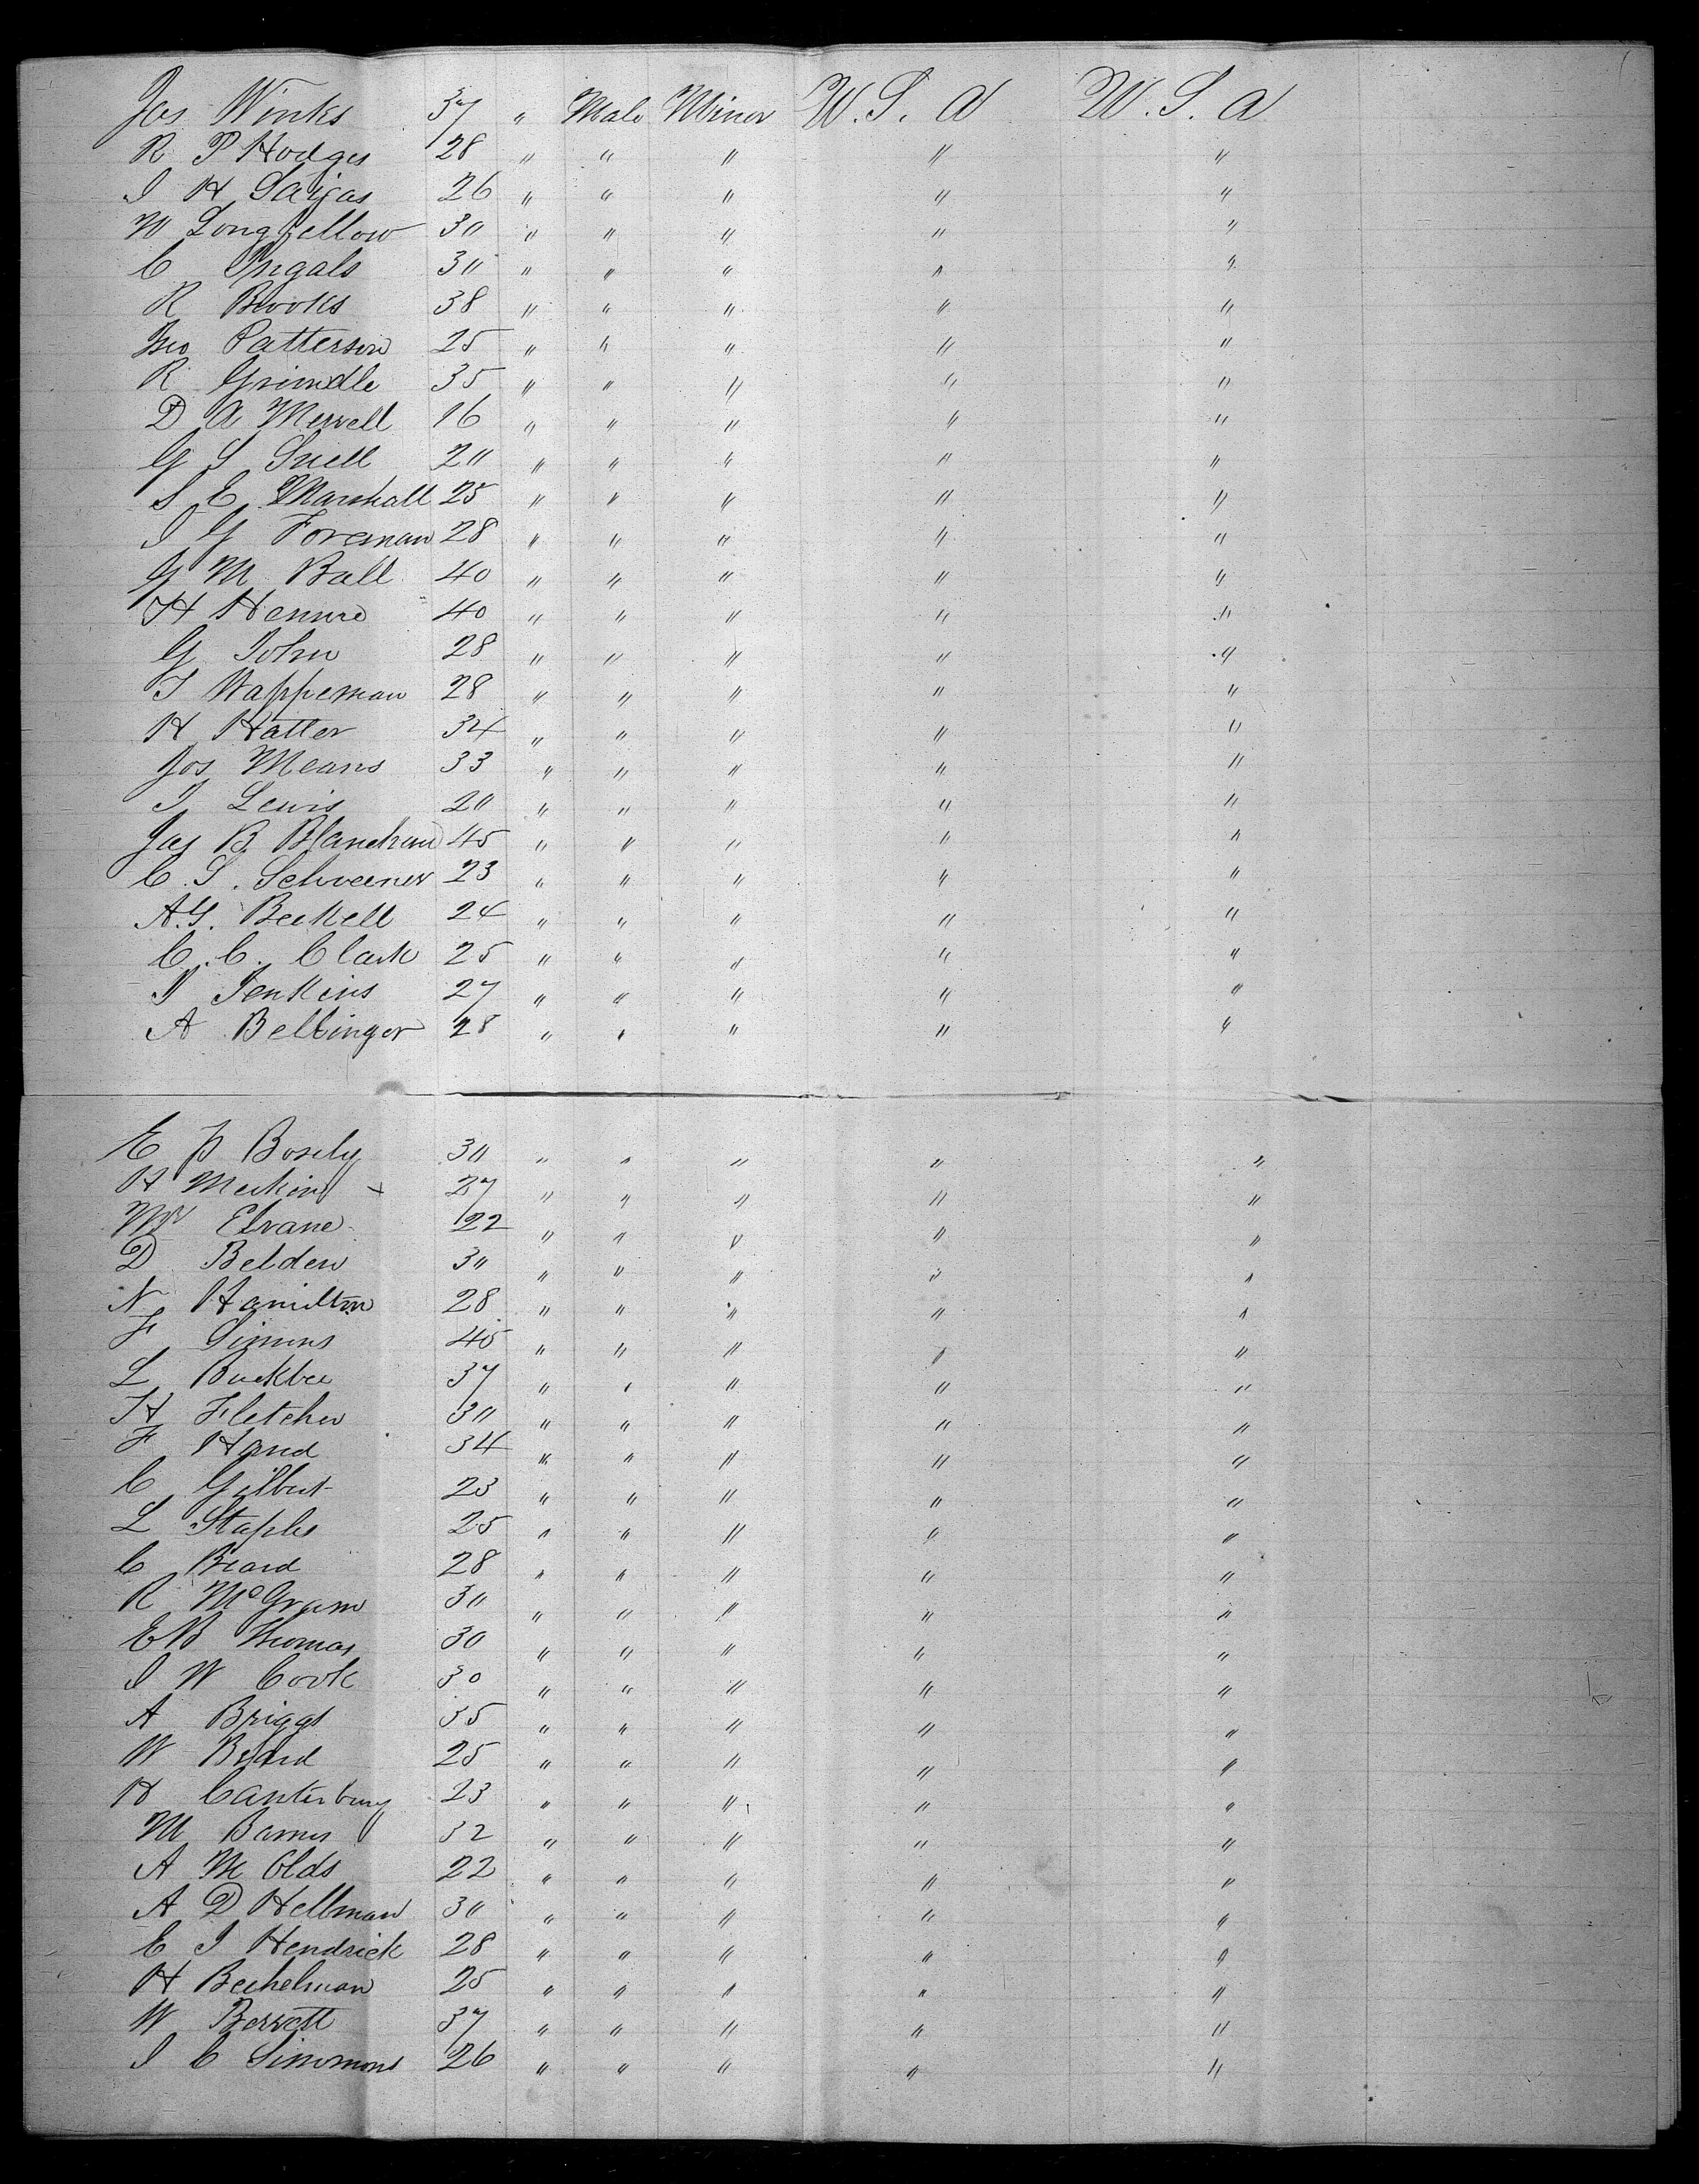 Jas Winks 37 " Male Miner U.S. a U.S. a
R P Hodges 28 " " " " "
J H Sayas 26 " " " " "
W Longfellow 30 " " " " "
C Ingals 30 " " " " "
R Brooks 38 " " " " "
Geo Patterson 25 " " " " "
R Grindle 35 " " " " "
D A Merrell 16 " " " " "
G S Snell 20 " " " " "
S E Marshall 25 " " " " "
J G Foreman 28 " " " " "
G M Ball 40 " " " " "
H 40 " " " " "
G John 28 " " " " "
T Wappeman 28 " " " " "
H Hatter 34 " " " " "
Jos Means 33 " " " " "
J Lewis 20 " " " " "
Jas B Blanchard 45 " " " " "
C. S. Schreener 23 " " " " "
A.G. Beckell 24 " " " " "
C. C. Clark 25 " " " " "
J Jenkins 27 " " " " "
A Bellinger 28 " " " " "
E P Bosely 30 " " " " "
H 27 " " " " "
Wm Elvane 22 " " " " "
D Belden 30 " " " " "
N Hamilton 28 " " " " "
F Simons 45 " " " " "
L Buckbee 37 " " " " "
H Fletcher 30 " " " " "
F Hand 34 " " " " "
C Gilbert 23 " " " " "
L Staples 25 " " " " "
C Beard 28 " " " " "
R McGraw 30 " " " " "
E B Thomas 30 " " " " "
J W Cook 30 " " " " "
A Briggs 35 " " " " "
W Beard 25 " " " " "
H Canterbury 23 " " " " "
M Barnes 32 " " " " "
A M Olds 22 " " " " "
A D Hellman 30 " " " " "
E J Hendrick 28 " " " " "
H Bechelman 25 " " " " "
W Berrett 37 " " " " "
J C Simmons 26 " " " " "